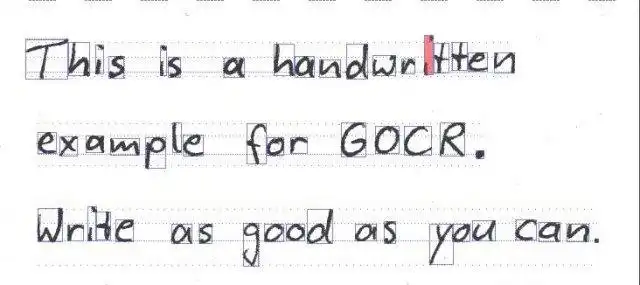 This is a handwritten
example for GOCR.
Write as good as you can.